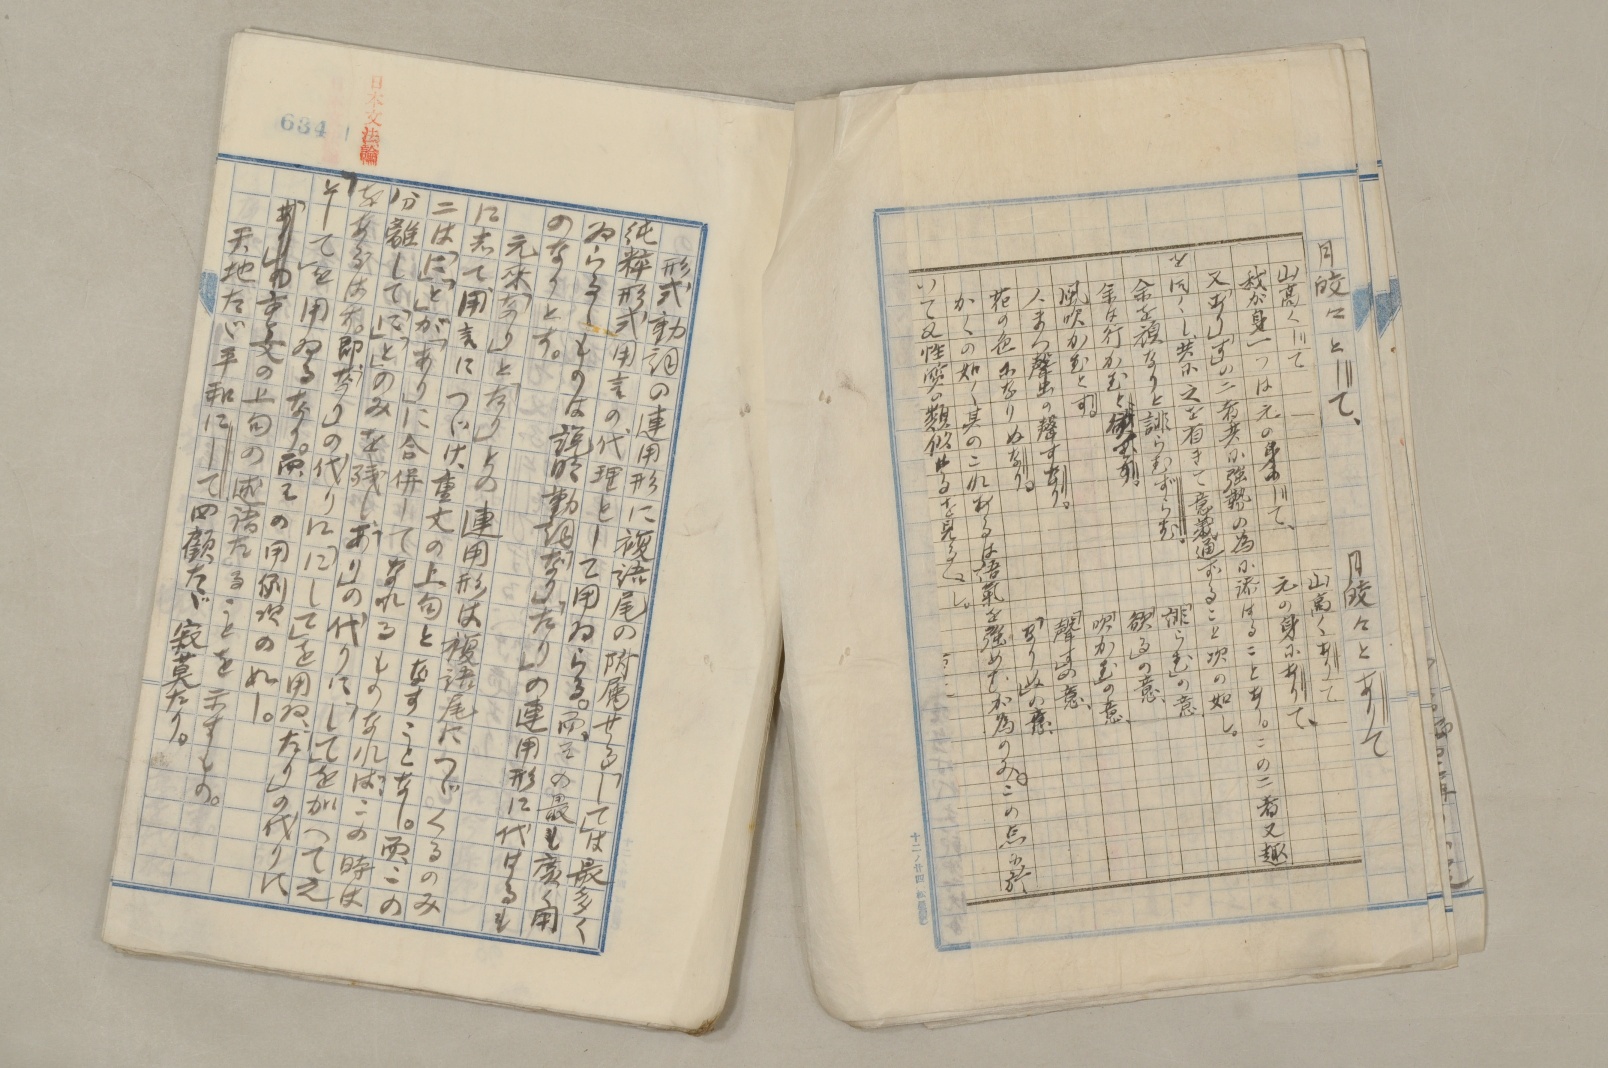 月皎々として、　月皎々とありて
山高くして　山高くありて
我が身一つは元の身にして、　元の身にありて、
又「あり」「す」の二者共に強勢の為に添はることあり。この二者又趣
を同くし共に之を有きて意義通ずることの次の如し。
余を頑なりと誹らむずらむ。　「誹らむ」の意
余は行かむと　「欲る」の意、
風吹かむとす。　「吹かむ」の意、
人まつ聲出の聲すなり。　「聲す」の意、
花の色になりぬなり。　「なりぬ」の意、
かくの如く其のこれあるは語氣を強めむが為のみ。この点に於
いて又性質の類似せるを見るべし。
日本文法論
634
形式動詞の連用形に複語尾の附属せる「して」は最多く
純粹形式用言の代理として用ゐらる。而その最も廣く用
ゐらるゝものは説明動詞「なり」「たり」の連用形に代はるも
のなりとす。
元來「なり」と「たり」との連用形は複語尾につゞくるのみ
にして用言につゞけ重文の上句となすことなし。而この
二は「に」「と」が「あり」に合併してなれるものなれば、この時は
分離して「に」「と」のみを殘し「あり」の代りに「して」を加へて之
をあらはす。即「なり」の代りに「にして」を用ゐ、「たり」の代りに
「として」を用ゐるなり。而その用例次の如し。
文の上句の述語たることを示すもの。
天地たゞ平和にして四顧たゞ寂莫たり。